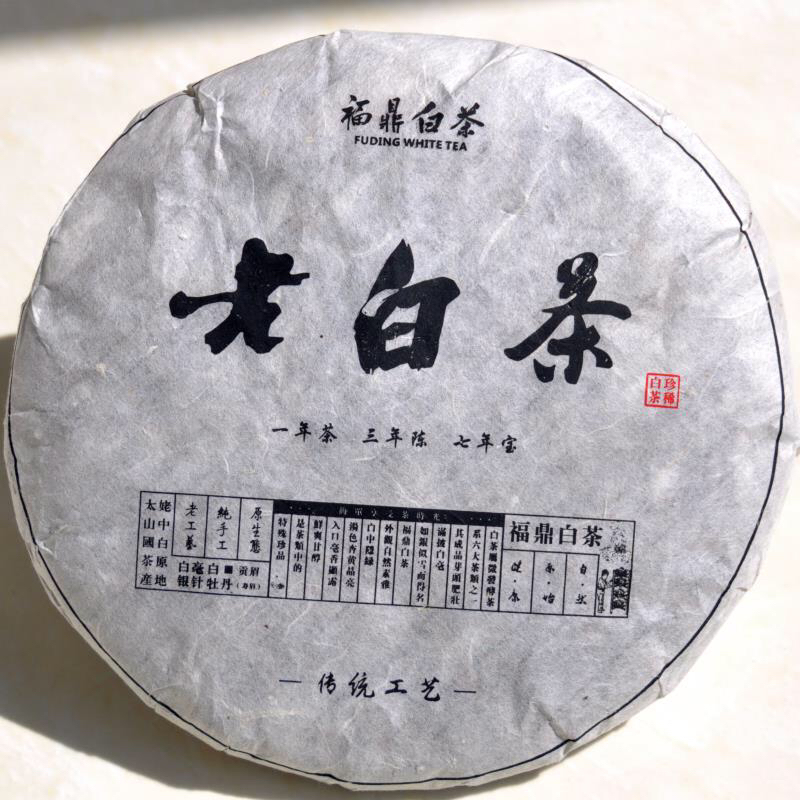 福鼎白茶
FUDING WHITE TEA
老白茶
珍稀
白茶
一年茶 三年陈 七年宝
福鼎白茶
自·然
原·始
健·康
享受茶時光
白茶屬微發酵茶
系六大茶類之一
其成品芽頭肥壯
滿披白毫
如銀似雪而得名
福鼎白茶
外觀自然素雅
白中隱綠
湯色杏黄晶亮
入口毫香顯露
鮮爽甘醇
是茶類中的
特殊珍品
原生態
純手工
老工藝
白毫銀針
白牡丹
貢眉
(寿眉)
太姥山中國白茶原産地
传统工艺